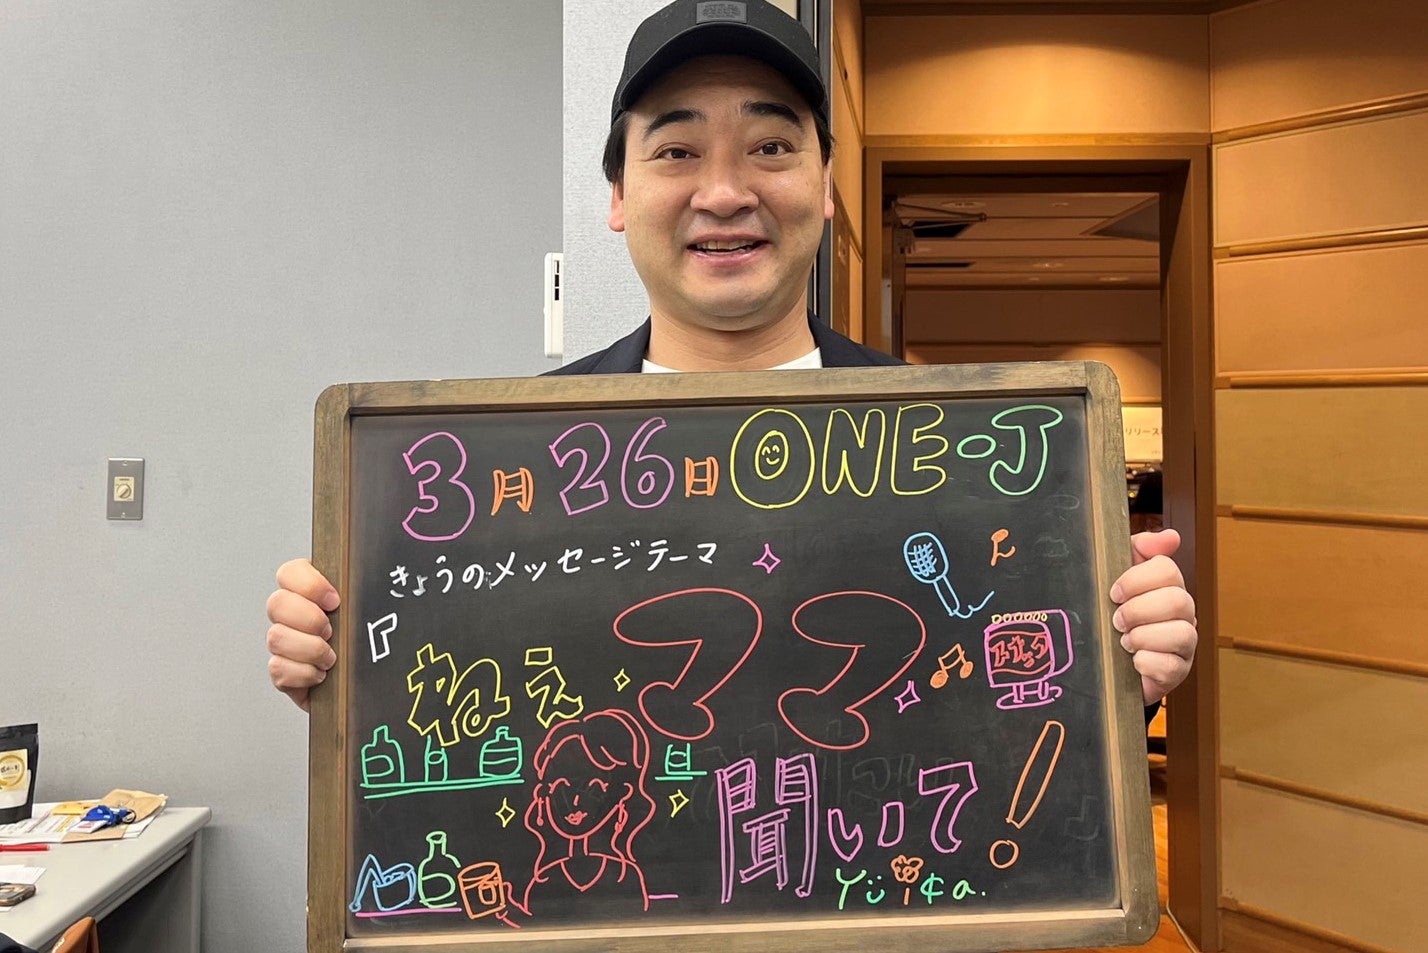 3月26日 ONE-J
きょうのメッセージテーマ
『ねぇママ
聞いて!
スナック
Yuika.
リリース